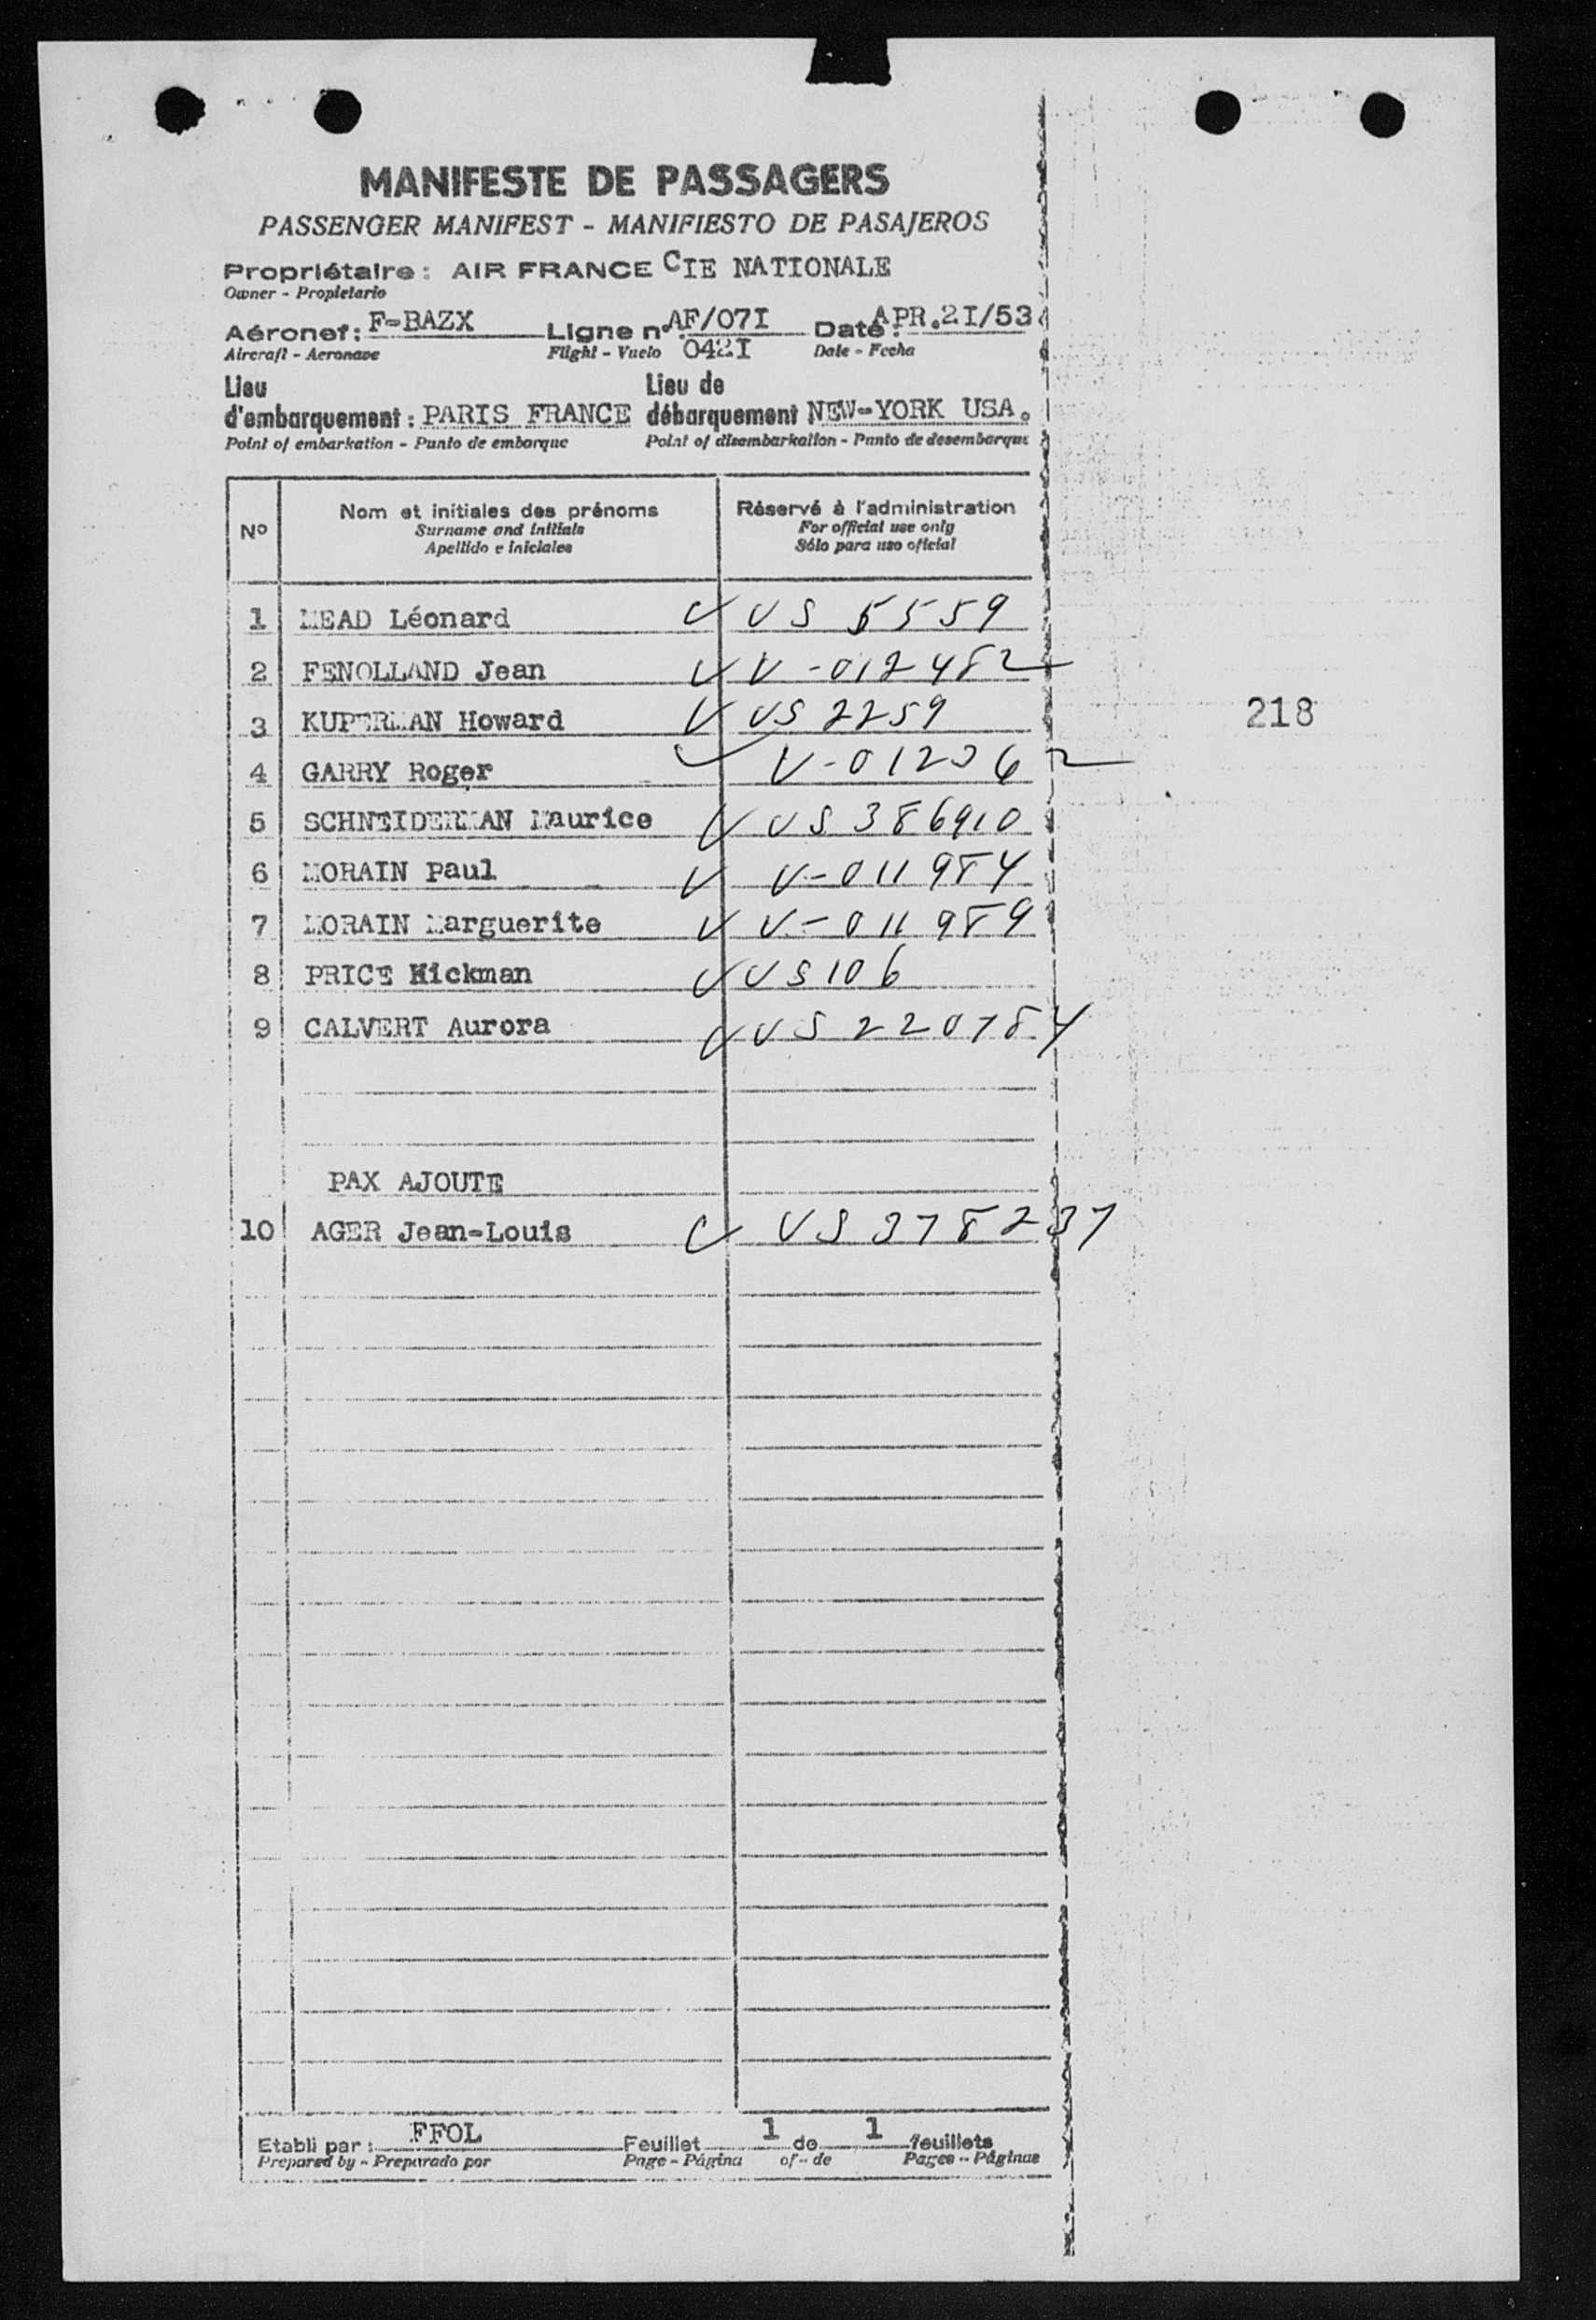 MANIFESTE DE PASSAGERS
PASSENGER MANIFEST - MANIFIESTO DE PASAJEROS
Propriétaire : AIR FRANCE CIE NATIONALE
Owner - Propietario
Aéronef : F-BAZX Ligne n° AF/07I Date : APR.2I/53
Aircraft - Aeronave Flight - Vuelo 042I Date - Fecha
Lieu Lieu de
d'embarquement : PARIS FRANCE débarquement NEW-YORK USA.
Point of embarkation - Punto de embarque Point of disembarkation - Punto de desembarque
N° Nom et initiales des prénoms Réservé à l'administration
Surname and initials For official use only
Apellido e iniciales Sólo para uso oficial
1 MEAD Léonard ✓ US 5559
2 FENOLLAND Jean ✓ V-012482
3 KUPERMAN Howard ✓ US 2259
218
4 GARRY Roger ✓ V-012362
5 SCHNEIDERMAN Maurice ✓ US 386910
6 MORAIN Paul ✓ V-011984
7 MORAIN Marguerite ✓ V-011989
8 PRICE Hickman ✓ US 106
9 CALVERT Aurora ✓ US 220784
PAX AJOUTE
10 AGER Jean-Louis ✓ US 378237
Etabli par : FFOL Feuillet 1 de 1 feuillets
Prepared by - Preparado por Page - Página of - de Pages - Páginas